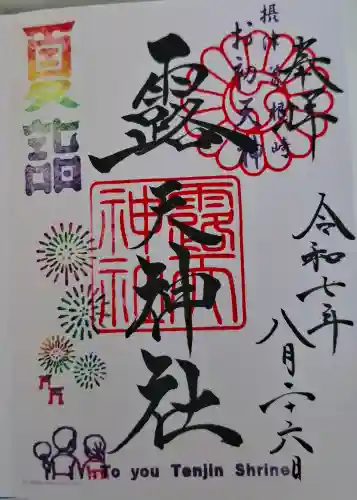 奉拝
摂津曽根崎
お初天神
露天神社
露天神社
令和七年
八月二十六日
夏詣
To you Tenjin Shrine